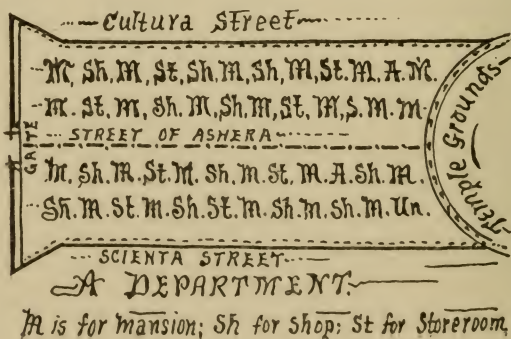 Cultura Street
M, Sh, M, St, Sh, M, Sh, M, St. M. A. M.
M. St, M, Sh. M, Sh. M, St, M, S. M. M.
STREET OF ASHERA
GATE
Temple Grounds
M. Sh. M. St. M. Sh. M. St. M. A. Sh. M.
Sh. M. St. M. Sh. St. M. Sh. M. Sh. M. Un.
SCIENTA STREET
A DEPARTMENT.
M is for Mansion; Sh for Shop; St for Storeroom,